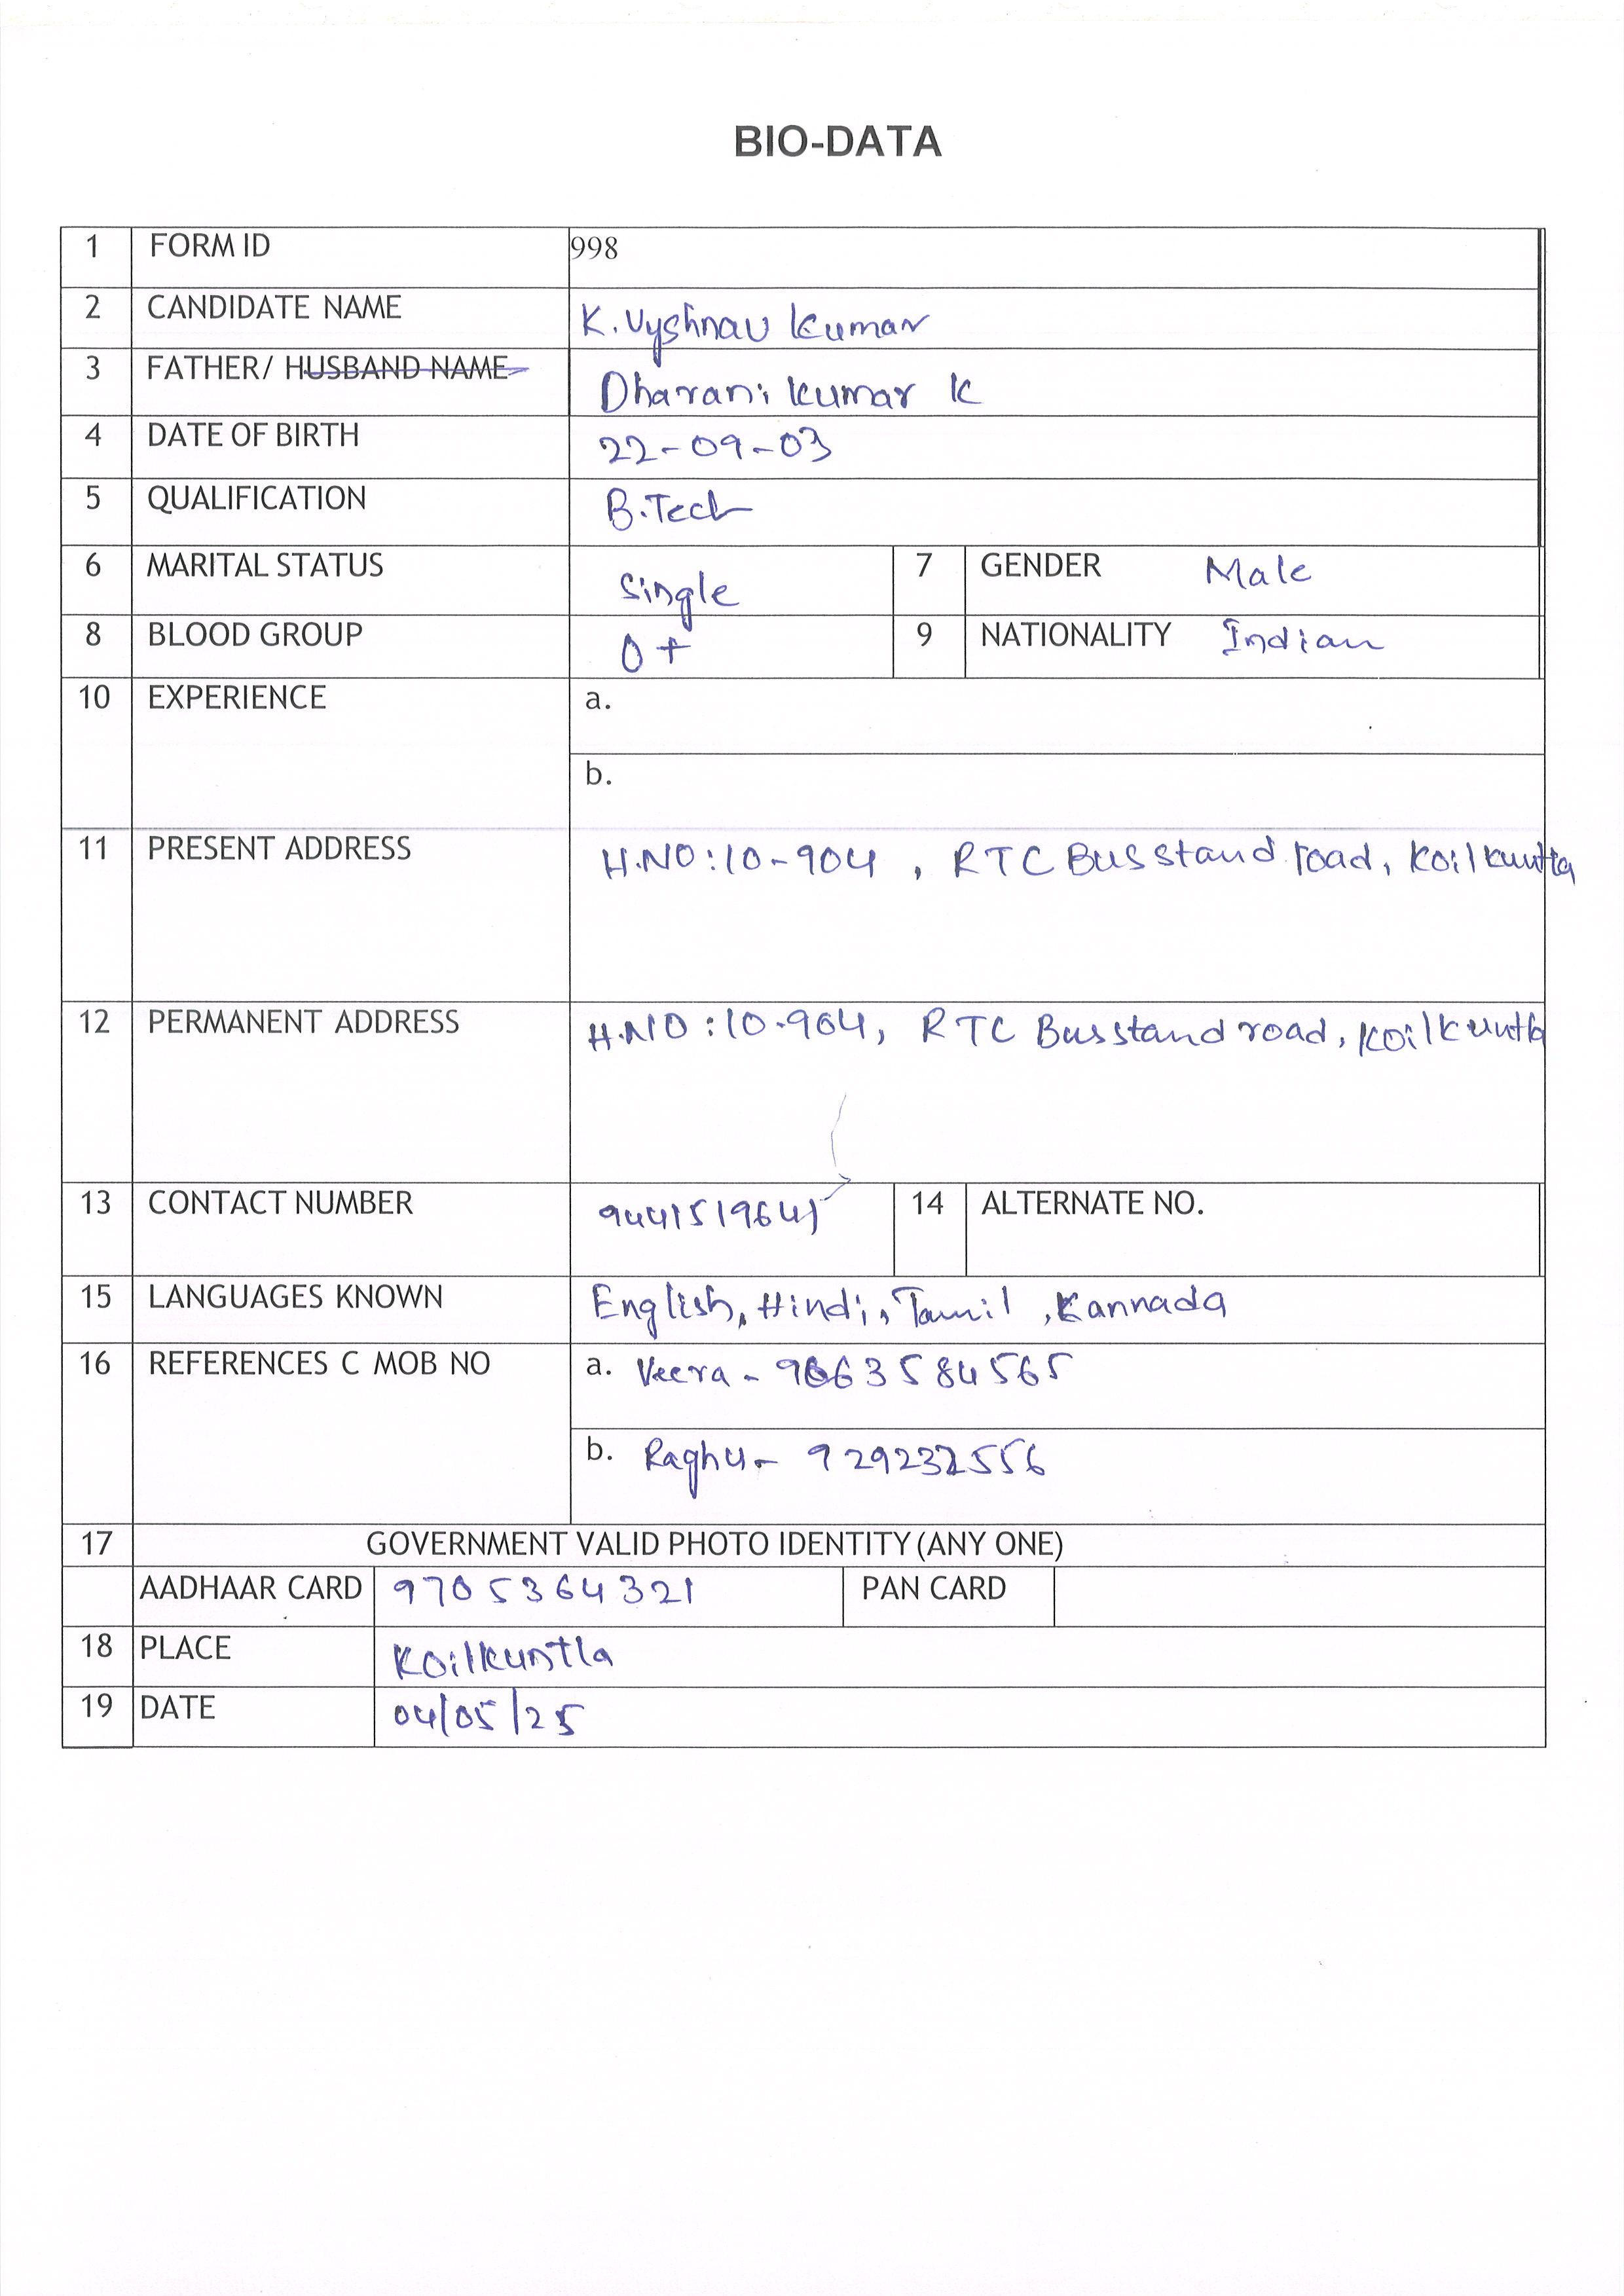 BIO-DATA
1 FORM ID 998
2 CANDIDATE NAME K. Vyshnav kumar
3 FATHER/ HUSBAND NAME Dharani kumar K
4 DATE OF BIRTH 22-09-03
5 QUALIFICATION B.Tech
6 MARITAL STATUS Single 7 GENDER Male
8 BLOOD GROUP O+ 9 NATIONALITY Indian
10 EXPERIENCE a.
b.
11 PRESENT ADDRESS H.NO:10-904, RTC Bus stand road, Koilkuntla
12 PERMANENT ADDRESS H.NO:10-904, RTC Bus stand road, Koilkuntla
13 CONTACT NUMBER 9441519641 14 ALTERNATE NO.
15 LANGUAGES KNOWN English, Hindi, Tamil, Kannada
16 REFERENCES C MOB NO a. Veera - 9663584565
b. Raghu - 929232556
17 GOVERNMENT VALID PHOTO IDENTITY (ANY ONE)
AADHAAR CARD 9705364321 PAN CARD
18 PLACE Koilkuntla
19 DATE 04/05/25